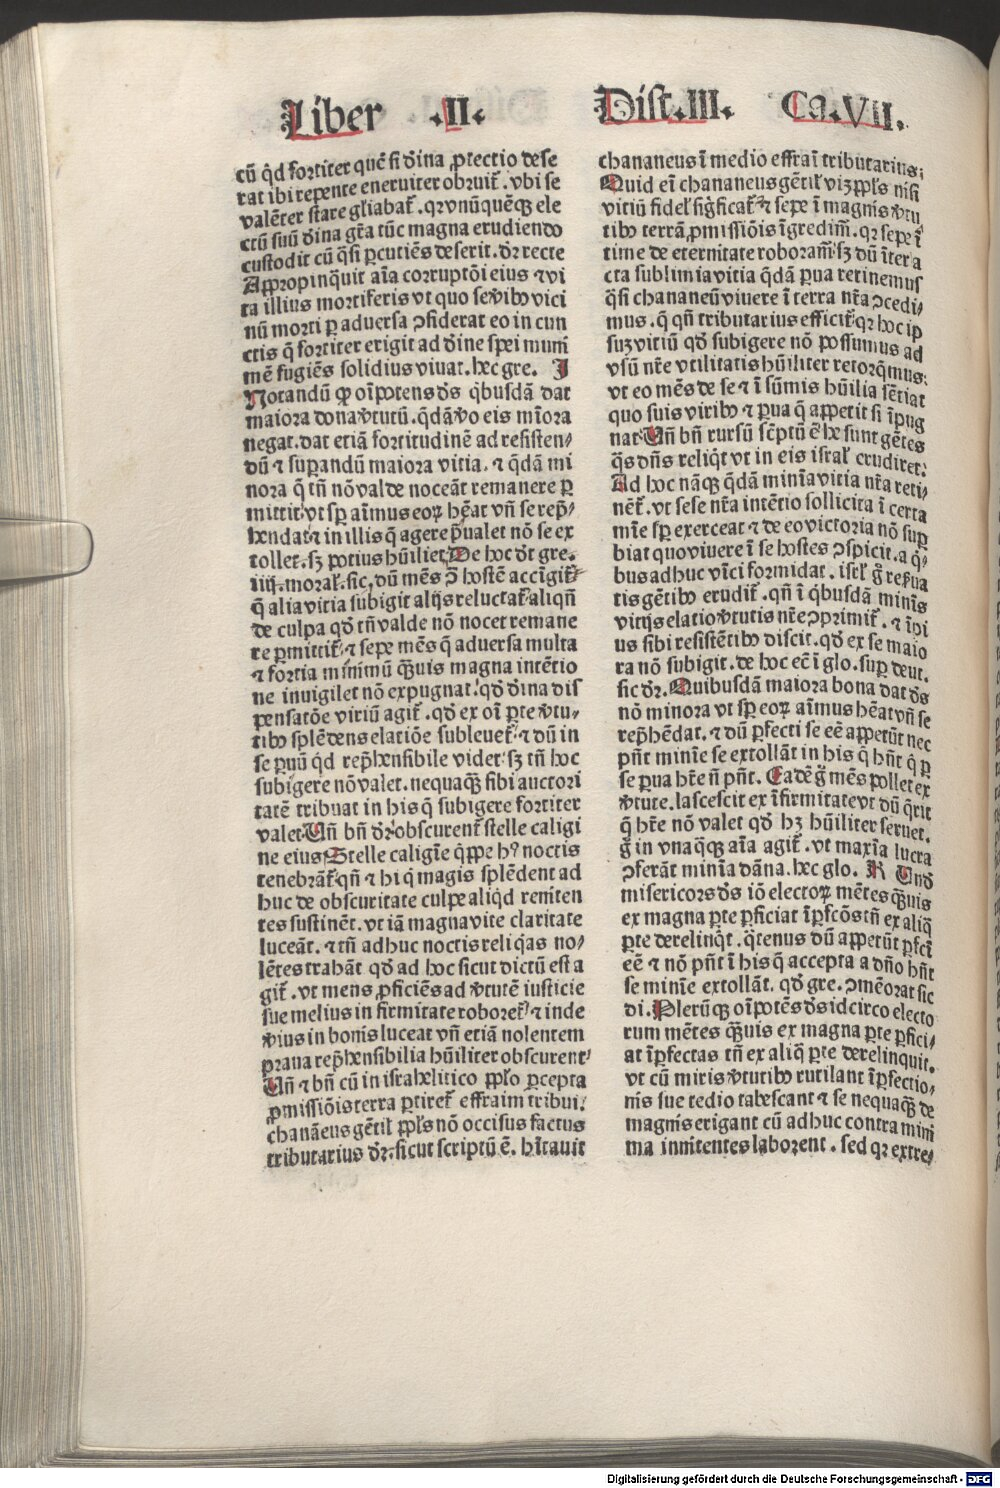 Liber .II. Dist.III. Ca.VII.
cū q̄d fortiter quē si dīna ꝓtectio dese
rat ibi repente eneruiter obruit̄. vbi se
valēter stare gl̄iabat̄. qꝛ vnūquēqꝫ ele
ctū suū dīna gr̄a tūc magna erudiendo
custodit cū q̄si ꝑcutiēs deserit. dꝛ recte
Appropinq̄uit aīa corruptōi eius ⁊ vi
ta illius mortiferis vt quo se v̓ibꝰ vici
nū morti ꝑ aduersa ꝯsiderat eo in cun
ctis q̄ fortiter erigit ad dīne spei munī
mē fugiēs solidius viuat. hec gre. I
Notandū ꝙ oīpotens dſ̄ q̇busdā dat
maiora dona v̓tutū. q̄dā v̓o eis mīora
negat. dat etiā fortitudinē ad resisten⸗
dū ⁊ suꝑandū maiora vitia. ⁊ q̄dā mi
nora q̄ tn̄ nō valde noceāt remanere ꝑ
mittit. vt sꝑ aīmus eoꝝ hēat vn̄ se rep̄⸗
hendat ⁊ in illis q̄ agere p̄ualet nō se ex
tollet. sꝫ potius hūiliet. De hoc dꝛ gre.
iiij. moral̄. sic, dū mēs ꝯ̄ hostē accīgit̄
q̄ alia vitia subigit alijs reluctat̄ aliqn̄
de culpa qd̓ tn̄ valde nō nocet remane
re ꝑmittit̄. ⁊ sepe mēs q̄ aduersa multa
⁊ fortia mīnimū q̄ꝫuis magna intētio
ne inuigilet nō expugnat. qd̓ dīna dis
pensatōe viriū agit̄. qd̓ ex oī ꝑte v̓tu⸗
tibꝰ splēdens elatiōe subleuet̄. ⁊ dū in
se ꝑuū qd̓ rep̄hensibile videt. sꝫ tn̄ hoc
subigere nō valet. nequaq̄ꝫ sibi auctori
tatē tribuat in his q̄ subigere fortiter
valet. Vn̄ bn̄ dꝛ. obscurent̄ stelle caligi
ne eius. Stelle caligīe q̇ppe hꝰ noctis
tenebrāt̄. qn̄ ⁊ hi q̇ magis splēdent ad
huc de obscuritate culpe aliq̇d reniten
tes sustinēt. vt iā magna vite claritate
luceāt. ⁊ tn̄ adhuc noctis reliq̇as no⸗
lētes trahāt qd̓ ad hoc sicut dictū est a
git̄. vt mens ꝓficiēs ad v̓tutē iusticie
sue melius in firmitate roboret̄. ⁊ inde
v̓ius in bonis luceat vn̄ etiā nolentem
praua rep̄hensibilia hūiliter obscurent.
Vn̄ ⁊ bn̄ cū in israhelitico ꝓpl̓o ꝑcepta
ꝓmissiōis terra ꝑtiret̄ effraim tribui.
chanāeus gētil̄ ꝓpl̓s nō occisus factus
tributarius dꝛ. sicut scriptū ē. hītauit
chananeus ī medio effraī tributarius.
Quid eī chananeus gētil̄ vizꝫ ꝓpl̓s nisi
vitiū fidel̄ sig̓ficat̄. ⁊ sepe ī magnis v̓tu
tibꝰ terrā ꝓmissiōis īgredim̄. qꝛ sepe ī
time de eternitate roboram̄. sꝫ dū īter a
cta sublimia vitia q̄dā ꝑua retinemus
q̄si chananeū viuere ī terra nr̄a ꝯcedi⸗
mus. q̄ qn̄ tributarius efficit̄. qꝛ hoc ip
suꝫ vitiū qd̓ subigere nō possumus ad
vsū nr̄e vtilitatis hūiliter retorq̄mus.
vt eo mēs de se ⁊ ī sūmis hūilia sētiat
quo suis viribꝰ ⁊ ꝑua q̄ appetit si īpug
nat. Vn̄ bn̄ rursū sc̓ptū ē he sunt gētes
q̄s dn̄s reliq̇t vt in eis isral̄ erudiret.
Ad hoc nāqꝫ q̄dā minīa vitia nr̄a reti⸗
nēt̄. vt sese nr̄a intētio sollicita ī certa
mīe sꝑ exerceat ⁊ de eo victoria nō suꝑ
biat quo viuere ī se hostes ꝯspicit. a q̇⸗
bus adhuc vīci formidat. isrl̄ g̓ res̓ua
tis gētibꝰ erudit̄. qn̄ ī q̇busdā minīs
vitijs elatio v̓tutis nr̄e ꝯprimit̄. ⁊ īpi
us sibi resistētibꝰ discit. qd̓ ex se maio
ra nō subigit. de hoc ec̄ ī glo. suꝑ deut.
sic dꝛ. Quibusdā maiora bona dat dſ̄
nō minora vt sꝑ eoꝝ aīmus hēat vn̄ se
rep̄hēdat. ⁊ dū ꝑfecti se eē appetūt nec
pn̄t minīe se extollāt in his q̄ hn̄t q̇ ꝑ
se ꝑua hr̄e n̄ pn̄t. Eadē g̓ mēs pollet ex
v̓tute. lascescit ex īfirmitate vt dū q̄rit
q̄ hr̄e nō valet qd̓ hꝫ hūiliter seruet.
g̓ in vnaq̄qꝫ aīa agit̄. vt maxīa lucra
ꝯferāt minīa dāna. hec glo. R Vnd̓
misericors dſ̄ iō electoꝝ mētes q̄ꝫuis
ex magna ꝑte ꝑficiat īꝑfc̄os tn̄ ex aliq̄
ꝑte derelinq̇t. q̄tenus dū appetūt ꝑfc̄i
eē ⁊ nō pn̄t ī his q̄ accepta a dn̄o hn̄t
se minīe extollāt. qd̓ gre. ꝯmēorat sic
di. Plerūqꝫ oīpotēs dſ̄ idcirco electo
rum mētes q̄ꝫuis ex magna ꝑte ꝑfici⸗
at īꝑfectas tn̄ ex aliq̄ ꝑte derelinquit.
vt cū miris v̓tutibꝰ rutilant īꝑfectio⸗
nis sue tedio tabescant ⁊ se nequaq̄ꝫ de
magnis erigant cū adhuc contra mini
ma innitentes laborent. sed qꝛ extre⸗
Digitalisierung gefördert durch die Deutsche Forschungsgemeinschaft - DFG